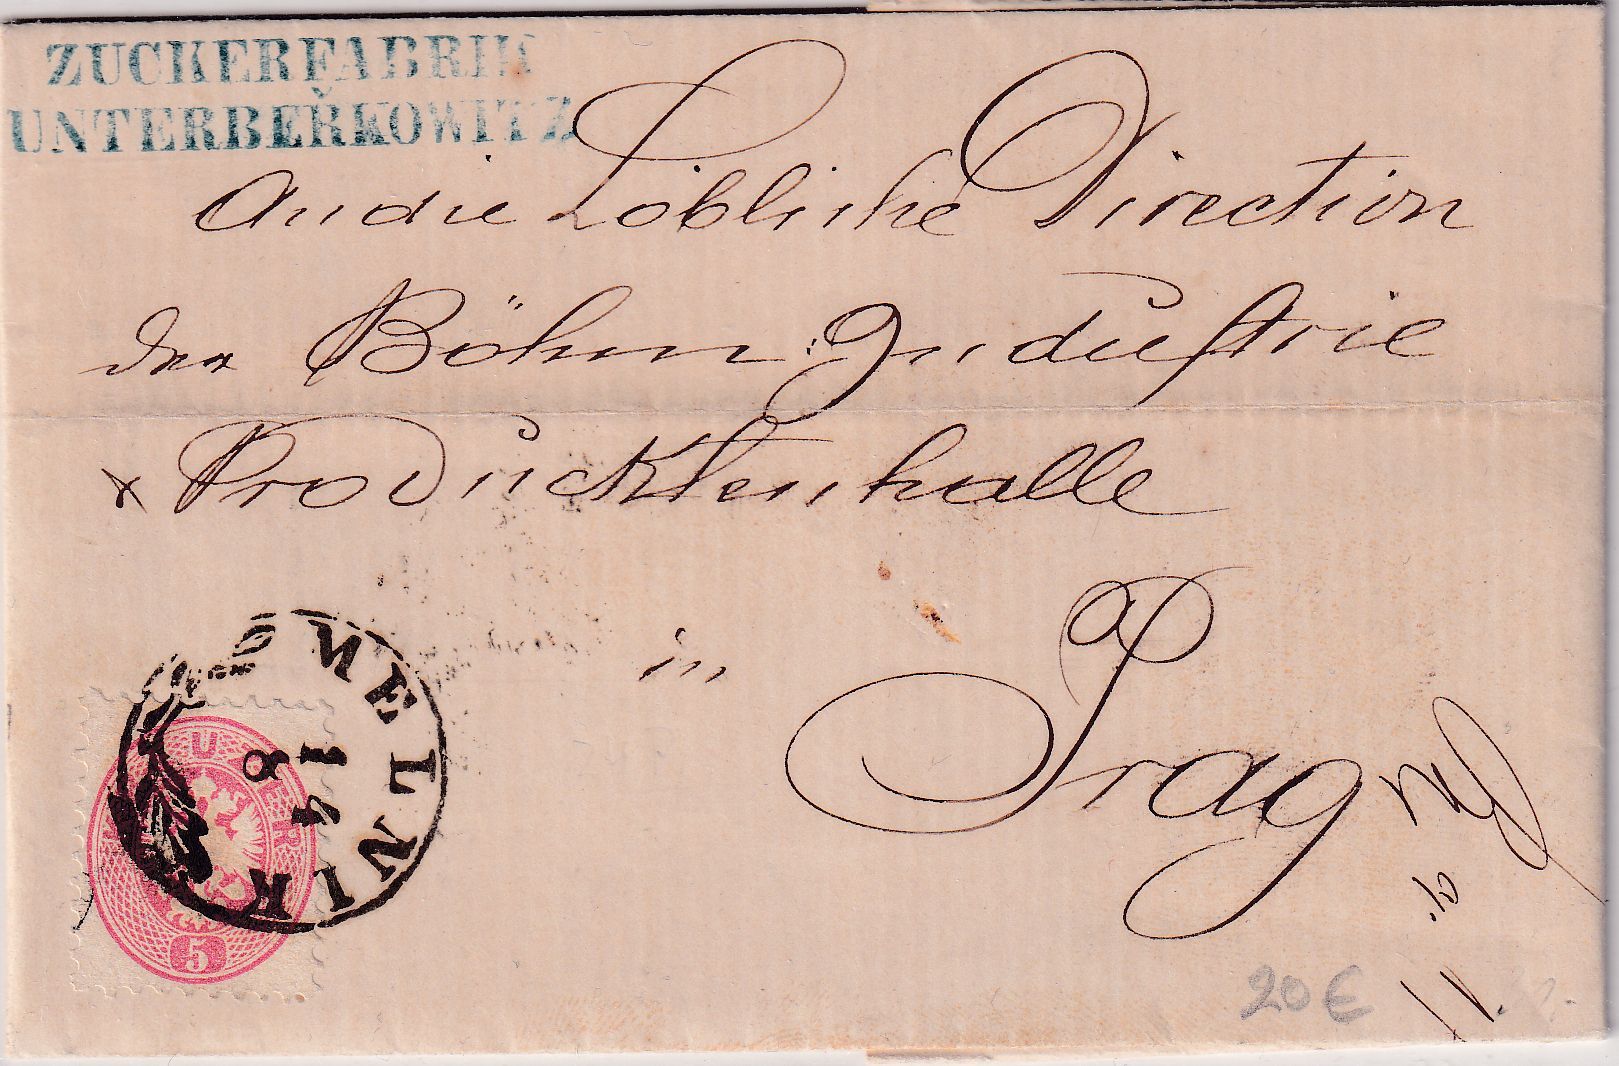 ZUCKERFABRIK
UNTERBEŘKOWITZ
An die Löbliche Direction
der Böhm: Industrie
x Producktenhalle
in Prag
MELNIK
14
8
KREUZER
5
20€